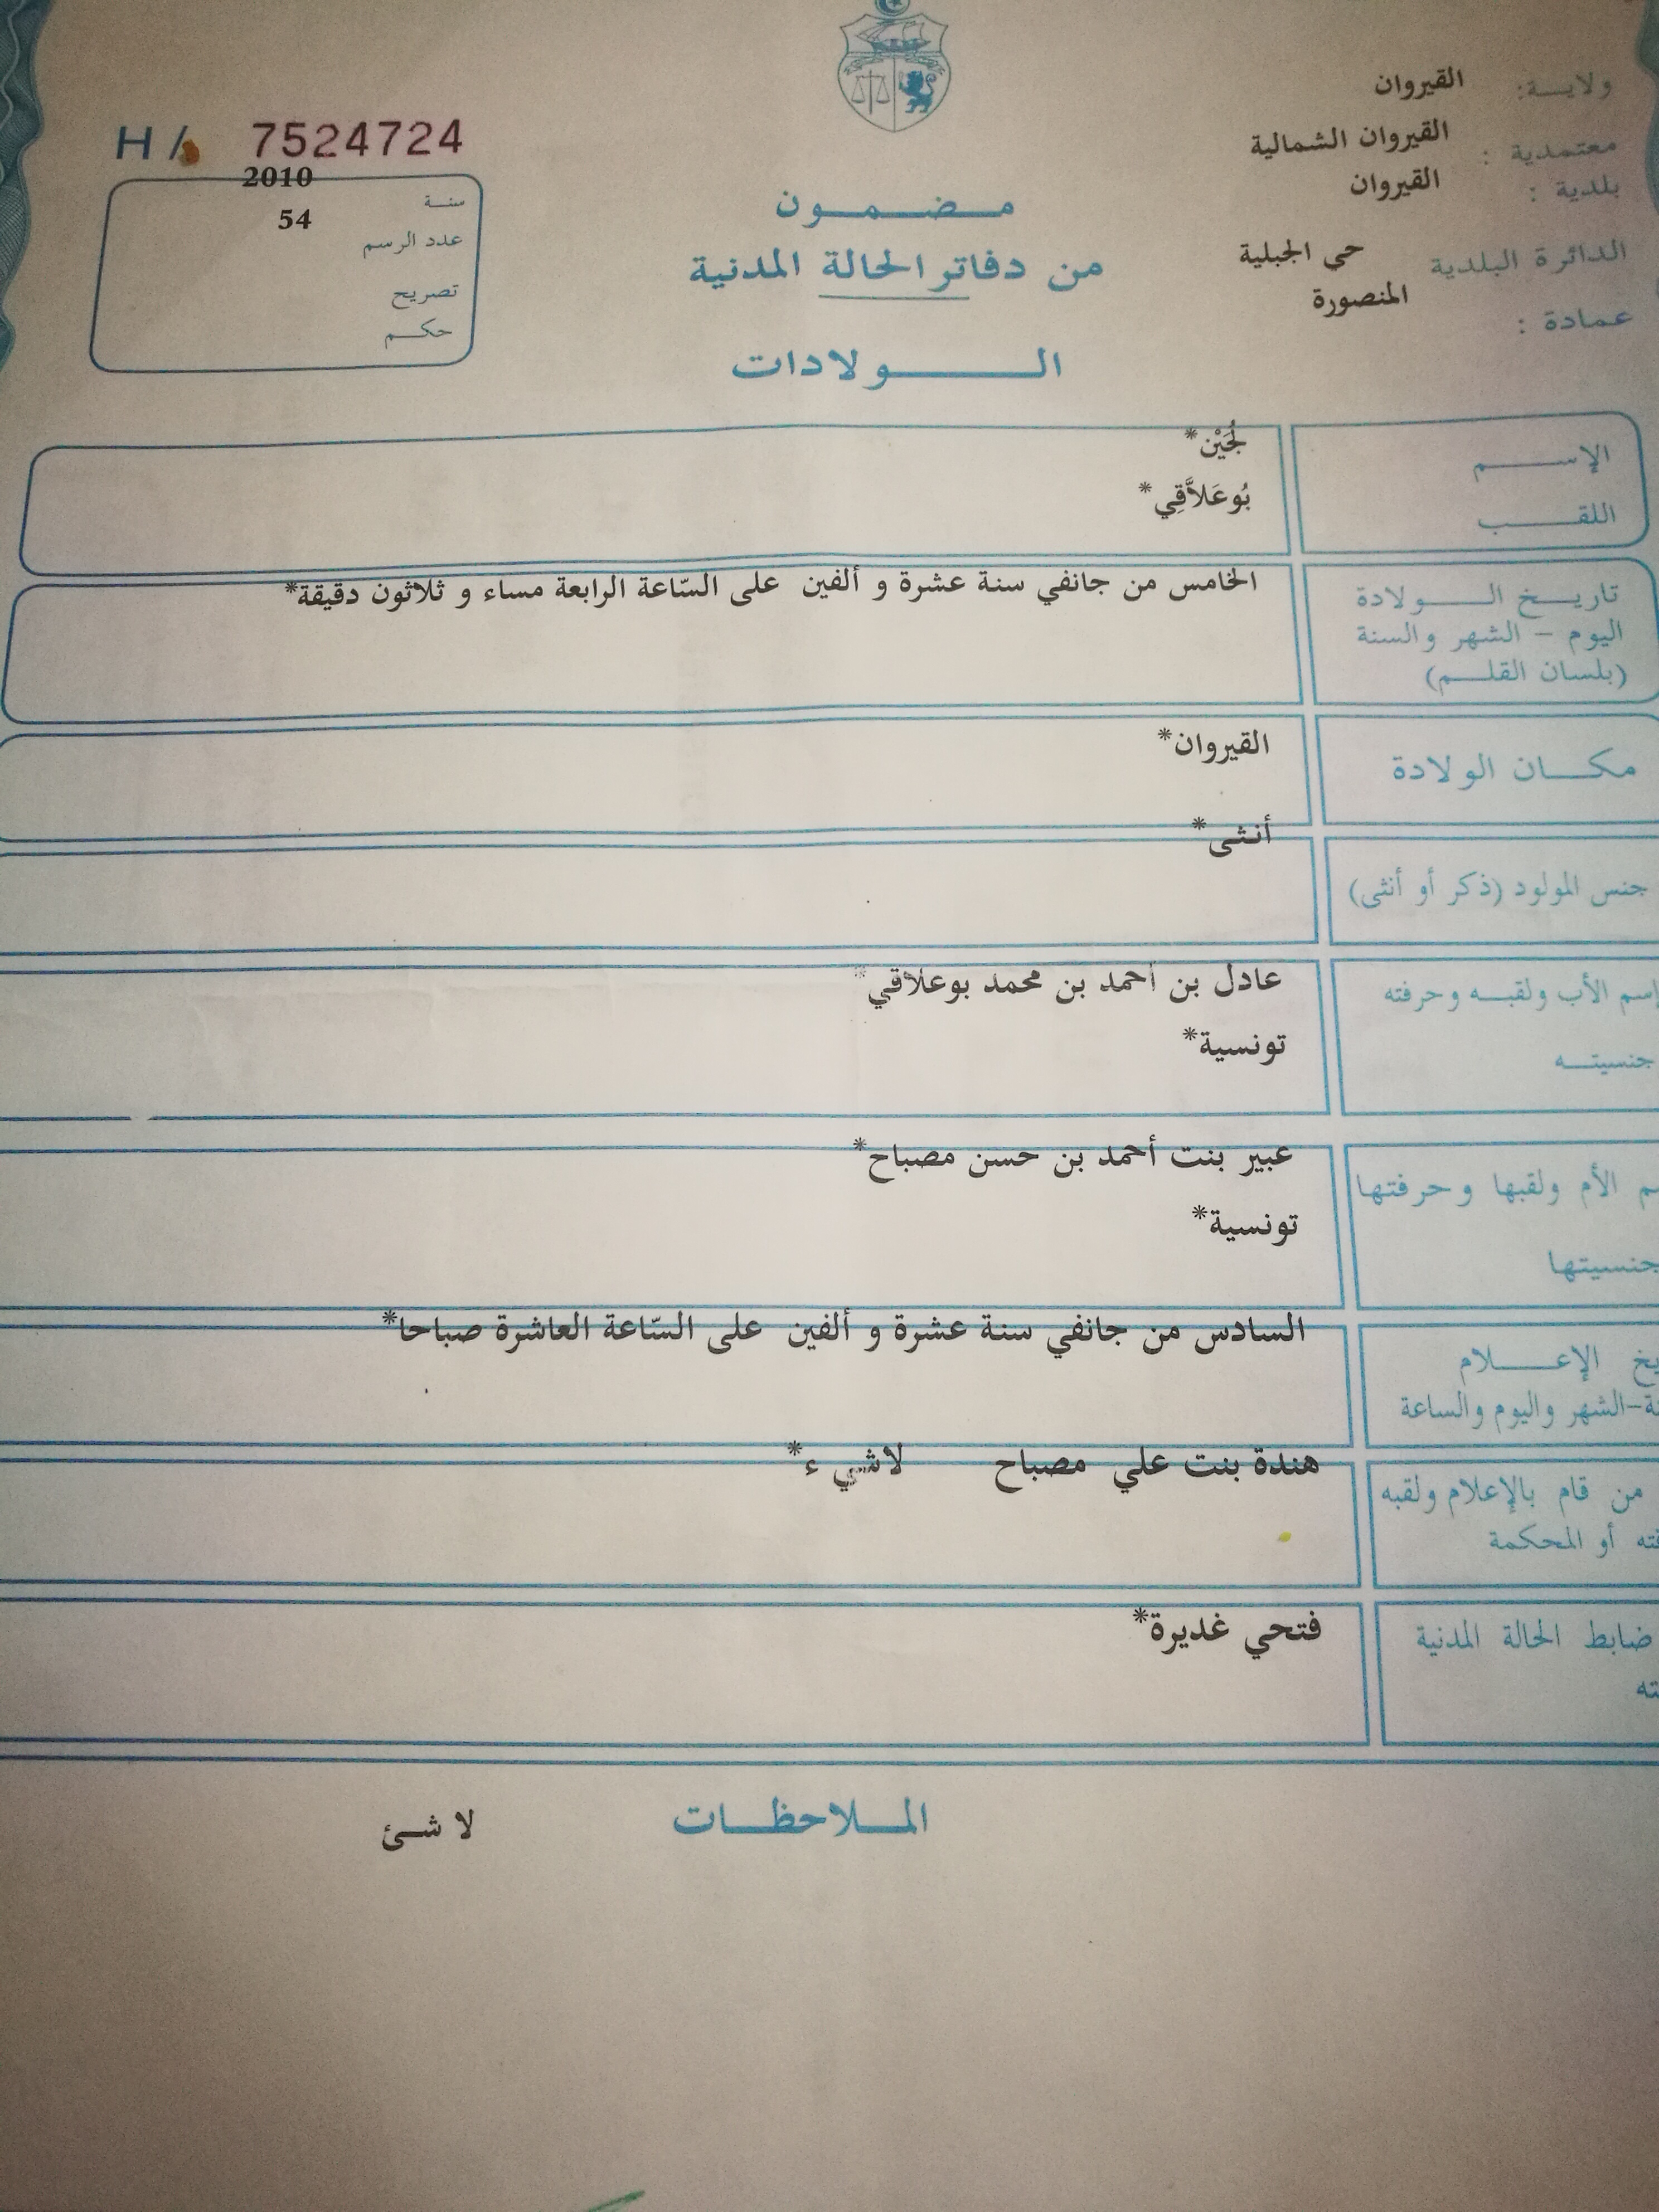 ولايـــة: القيروان
معتمدية : القيروان الشمالية
بلدية : القيروان
الدائرة البلدية حي الجبلية
عمادة : المنصورة
H/ 7524724
سنــة 2010
عدد الرسم 54
تصريح
حكــم
مــضــمــون
من دفاتر الحالة المدنية
الــــولادات
الإســـــم لُجَيْن*
اللقـــب بُوعَلاَّقِي*
تاريــخ الــــولادة الخامس من جانفي سنة عشرة و ألفين على السّاعة الرابعة مساء و ثلاثون دقيقة*
اليوم – الشهر والسنة
(بلسان القلـــم)
مكـــان الولادة القيروان*
جنس المولود (ذكر أو أنثى) أنثى*
إسم الأب ولقبــه وحرفته عادل بن أحمد بن محمد بوعلاقي*
جنسيتــه تونسية*
الأم ولقبها وحرفتها عبير بنت أحمد بن حسن مصباح*
جنسيتها تونسية*
الإعــــلام السادس من جانفي سنة عشرة و ألفين على السّاعة العاشرة صباحا*
الشهر واليوم والساعة
من قام بالإعلام ولقبه هندة بنت علي مصباح لاشي ء*
أو المحكمة
ضابط الحالة المدنية فتحي غديرة*
الملاحظــات لا شئ